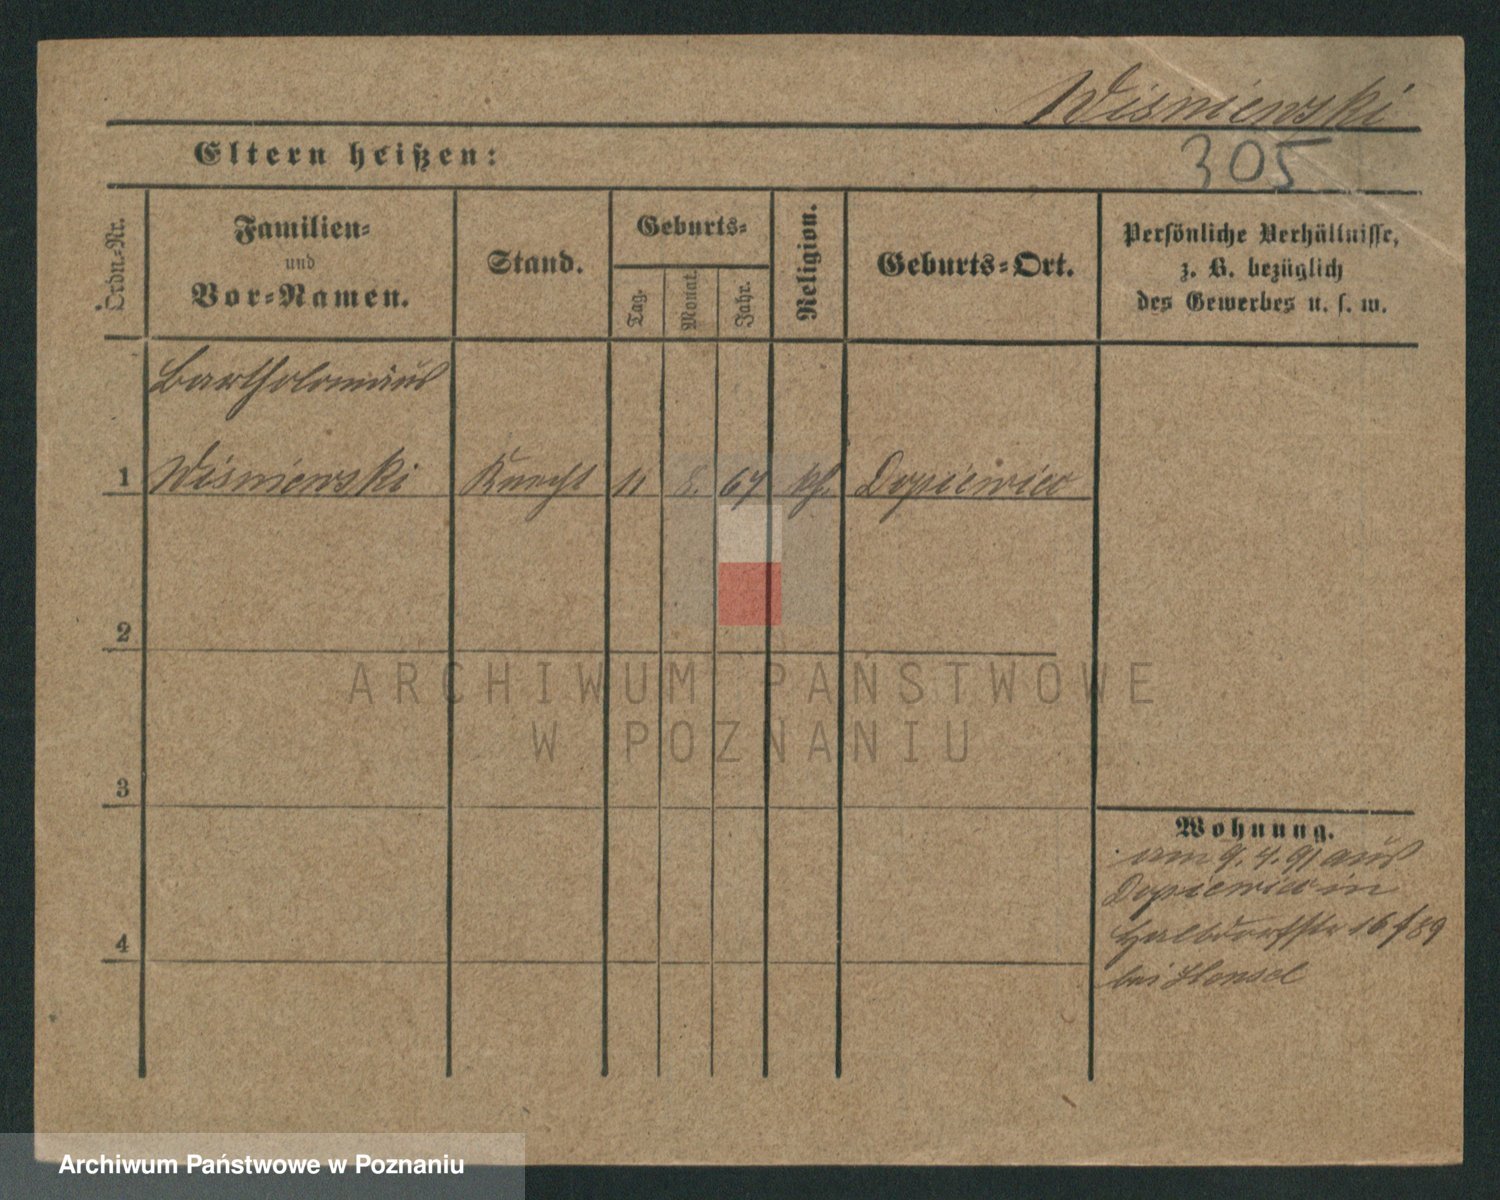 Wisniewski
Eltern heißen:
305
Ordn.-Nr.
Familien-
und
Vor-Namen.
Stand.
Geburts-
Tag.
Monat.
Jahr.
Religion.
Geburts-Ort.
Persönliche Verhältnisse,
z. B. bezüglich
des Gewerbes u. s. w.
Bartholomäus
1 Wisniewski Knecht 11 8. 67 kth. Dopiewiec
2
3
4
Wohnung.
am 9. 4. 91 aus
Dopiewiec in
Halbdorfstr 16/89
bei Hensel
ARCHIWUM PAŃSTWOWE
W POZNANIU
Archiwum Państwowe w Poznaniu